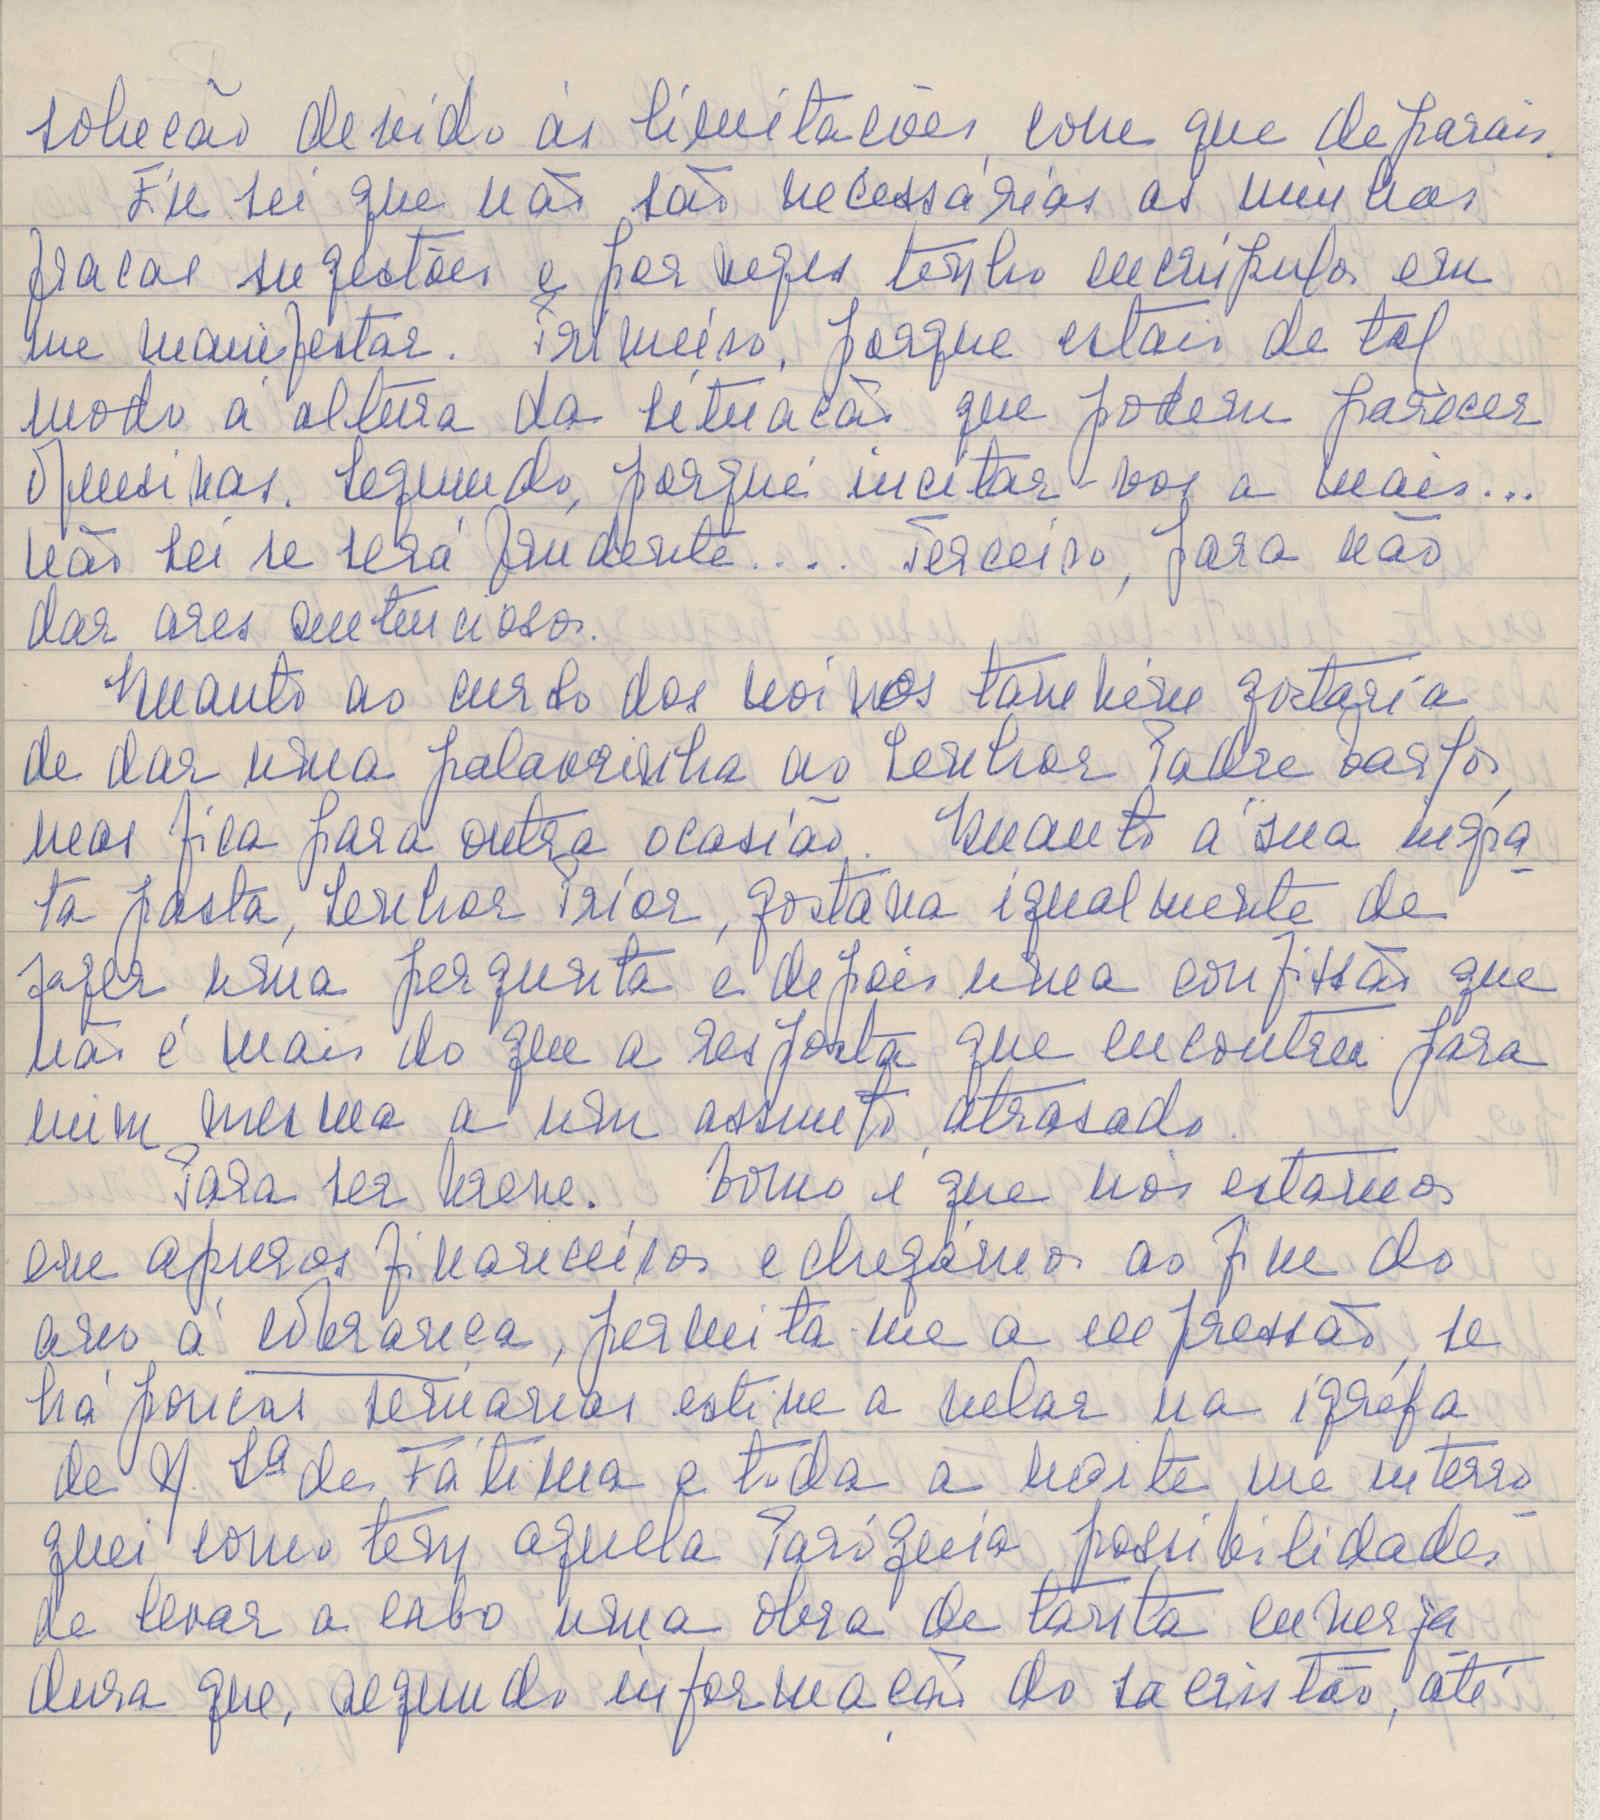 solução devido às limitações, com que deparais.
Eu sei que não são necessárias as minhas
fracas sugestões e por vezes tenho escrúpulos em
me manifestar. Primeiro, porque estais de tal
modo à altura da situação que podem parecer
ofensivas. Segundo, porque incitar-vos a mais...
não sei se será prudente.... Terceiro, para não
dar ares sentenciosos.
Quanto ao curso dos noivos também gostaria
de dar uma palavrinha ao Senhor Padre Carlos,
mas fica para outra ocasião. Quanto à sua ingra
ta pasta, Senhor Prior, gostava igualmente de
fazer uma pergunta e depois uma confissão que
não é mais do que a resposta que encontrei para
mim mesma a um assunto atrasado.
Para ser breve. Como é que nós estamos
em apuros financeiros e chegámos ao fim do
ano à cobrança, permita-me a expressão, se
há poucas semanas estive a velar na igreja
de N. Sª de Fátima e toda a noite me interro
guei como tem aquela Paróquia possibilidades
de levar a cabo uma obra de tanta enverga
dura que, segundo informação do sacristão, até